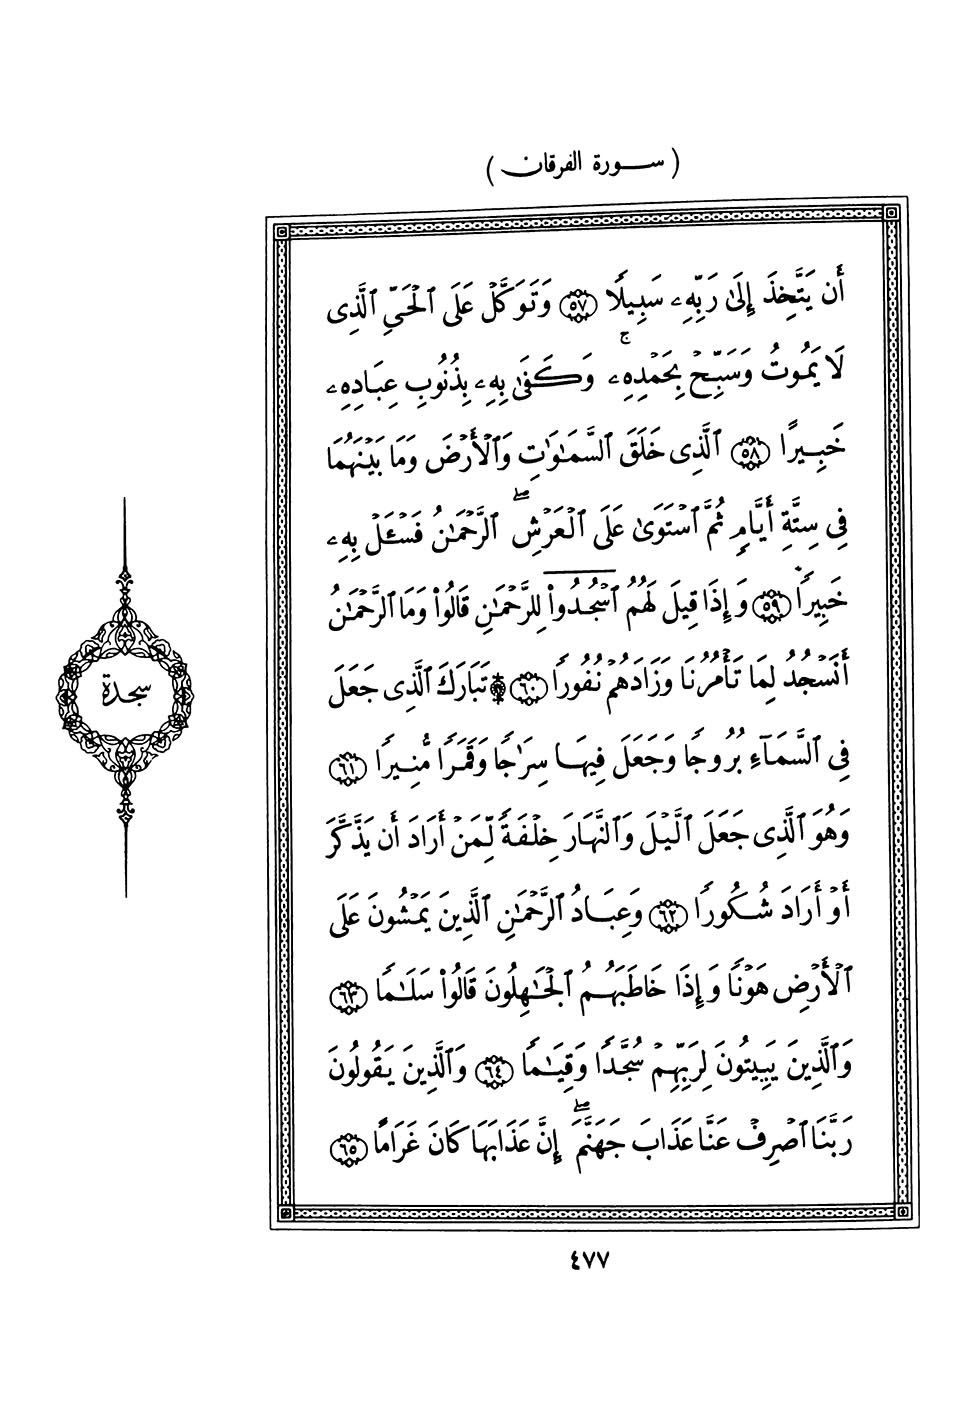 ( سورة الفرقان )
أَن يَتَّخِذَ إِلَىٰ رَبِّهِۦ سَبِيلًا ٥٧ وَتَوَكَّلْ عَلَى ٱلْحَىِّ ٱلَّذِى
لَا يَمُوتُ وَسَبِّحْ بِحَمْدِهِۦ ۚ وَكَفَىٰ بِهِۦ بِذُنُوبِ عِبَادِهِۦ
خَبِيرًا ٥٨ ٱلَّذِى خَلَقَ ٱلسَّمَـٰوَٰتِ وَٱلْأَرْضَ وَمَا بَيْنَهُمَا
فِى سِتَّةِ أَيَّامٍ ثُمَّ ٱسْتَوَىٰ عَلَى ٱلْعَرْشِ ۖ ٱلرَّحْمَـٰنُ فَسْـَٔلْ بِهِۦ
خَبِيرًا ٥٩ وَإِذَا قِيلَ لَهُمُ ٱسْجُدُوا۟ لِلرَّحْمَـٰنِ قَالُوا۟ وَمَا ٱلرَّحْمَـٰنُ
أَنَسْجُدُ لِمَا تَأْمُرُنَا وَزَادَهُمْ نُفُورًا ٦٠ ۞ تَبَارَكَ ٱلَّذِى جَعَلَ
فِى ٱلسَّمَآءِ بُرُوجًا وَجَعَلَ فِيهَا سِرَٰجًا وَقَمَرًا مُّنِيرًا ٦١
وَهُوَ ٱلَّذِى جَعَلَ ٱلَّيْلَ وَٱلنَّهَارَ خِلْفَةً لِّمَنْ أَرَادَ أَن يَذَّكَّرَ
أَوْ أَرَادَ شُكُورًا ٦٢ وَعِبَادُ ٱلرَّحْمَـٰنِ ٱلَّذِينَ يَمْشُونَ عَلَى
ٱلْأَرْضِ هَوْنًا وَإِذَا خَاطَبَهُمُ ٱلْجَـٰهِلُونَ قَالُوا۟ سَلَـٰمًا ٦٣
وَٱلَّذِينَ يَبِيتُونَ لِرَبِّهِمْ سُجَّدًا وَقِيَـٰمًا ٦٤ وَٱلَّذِينَ يَقُولُونَ
رَبَّنَا ٱصْرِفْ عَنَّا عَذَابَ جَهَنَّمَ ۖ إِنَّ عَذَابَهَا كَانَ غَرَامًا ٦٥
سجدة
٤٧٧